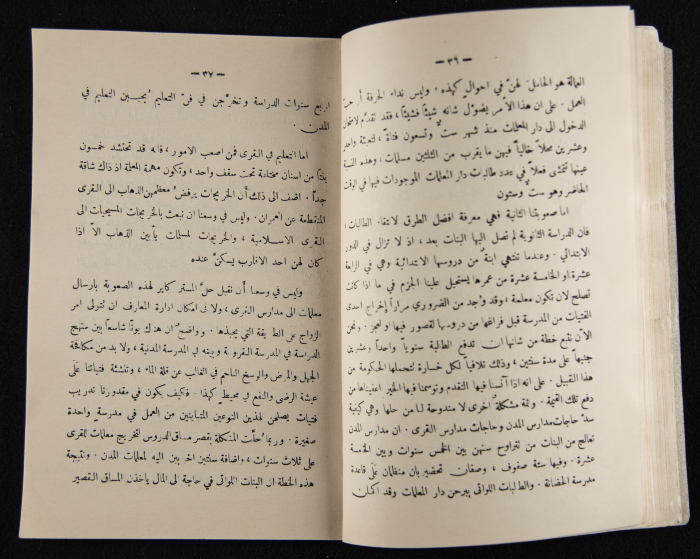 — ٣٦ —
العمالة هو الحامل لهنَّ في احوال كهذه، وليس نداء الحرفة او حبّ
العمل. على ان هذا الأمر يضؤل شأنه شيئًا فشيئًا، فقد تقدَّم لامتحان
الدخول الى دار المعلمات منذ شهر ستٌّ وتسعون فتاةً، لتعبئة واحد
وعشرين محلاً خالياً فيهن ما يقرب من الثلثين مسلمات، وهذه النسبة
عينها تتمشى فعلاً في عدد طالبات دار المعلمات الموجودات فيها في الوقت
الحاضر وهو ستٌّ وستون
اما صعوبتنا الثانية فهي معرفة افضل الطرق لانتقاء الطالبات،
فان الدراسة الثانوية لم تصل اليها البنات بعد، اذ لا تزال في الدور
الابتدائي. وعندما تنتهي ابنةٌ من دروسها الابتدائية وهي في الرابعة
عشرة او الخامسة عشرة من عمرها يستحيل علينا الجزم في ما اذا كانت
تصلح لان تكون معلمة، وقد وُجد من الضروري مراراً إخراج احدى
الفتيات من المدرسة قبل فراغها من دروسها لقصور فيها او لعجز. ونحن
الآن نتبع خطة من شأنها ان تدفع الطالبة سنوياً واحداً وعشرين
جنيهاً على مدة سنتين، وذلك تلافياً لكل خسارة تتحملها الحكومة من
هذا القبيل. على انه اذا آنسنا فيها التقدم وتوسمنا فيها الخير اعفيناها من
دفع تلك القيمة. وثمة مشكلةٌ اخرى لا مندوحة لنا من حلها وهي كيفية
سدّ حاجات مدارس المدن وحاجات مدارس القرى. ان مدارس المدن
تعالج من البنات من تتراوح سنهن بين الخمس سنوات وبين الخامسة
عشرة. وفيها ستة صفوف، وصفان تحضيريان منظمان على قاعدة
مدرسة الحضانة. والطالبات اللواتي يبرحن دار المعلمات وقد اكملن
— ٣٧ —
اربع سنوات الدراسة وتخرَّجن في فن التعليم يُحببن التعليم في
المدن.
اما التعليم في القرى فمن اصعب الامور، فانه قد تحتشد خمسون
بنتًا من اسنان مختلفة تحت سقف واحد، وتكون مهمة المعلمة اذ ذاك شاقة
جداً. اضف الى ذلك أن الخريجات يرفضُ معظمهن الذهاب الى القرى
المنقطعة عن العمران. وليس في وسعنا ان نبعث بالخريجات المسيحيات الى
القرى الاسلامية، والخريجات المسلمات يأبين الذهاب الاّ اذا
كان لهن احد الاقارب يسكنَّ عنده
وليس في وسعنا أن نقبل حلّ المستر كاير لهذه الصعوبة بارسال
معلمات الى مدارس القرى، ولا في امكان ادارة المعارف ان تتولى امر
الزواج على الطريقة التي يحبذها. وواضحٌ ان هنالك بونًا شاسعاً بين منهج
الدراسة في المدرسة القروية وبينه في المدرسة المدنية، ولا بد من مكافحة
الجهل والمرض والوسخ الناجم في الغالب عن قلة الماء، وتنشئة فتياتنا على
عيشة الرضى والنفع في محيط كهذا. فكيف يكون في مقدورنا تدريب
فتيات يصلحن لهذين النوعين المتباينين من العمل في مدرسة واحدة
صغيرة. وربما حُلَّت المشكلة بقصر مساق الدروس لتخريج معلمات للقرى
على ثلاث سنوات، واضافة سنتين اخريين اليه لمعلمات المدن. ونتيجة
هذه الخطة ان البنات اللواتي في حاجة الى المال يأخذن المساق القصير